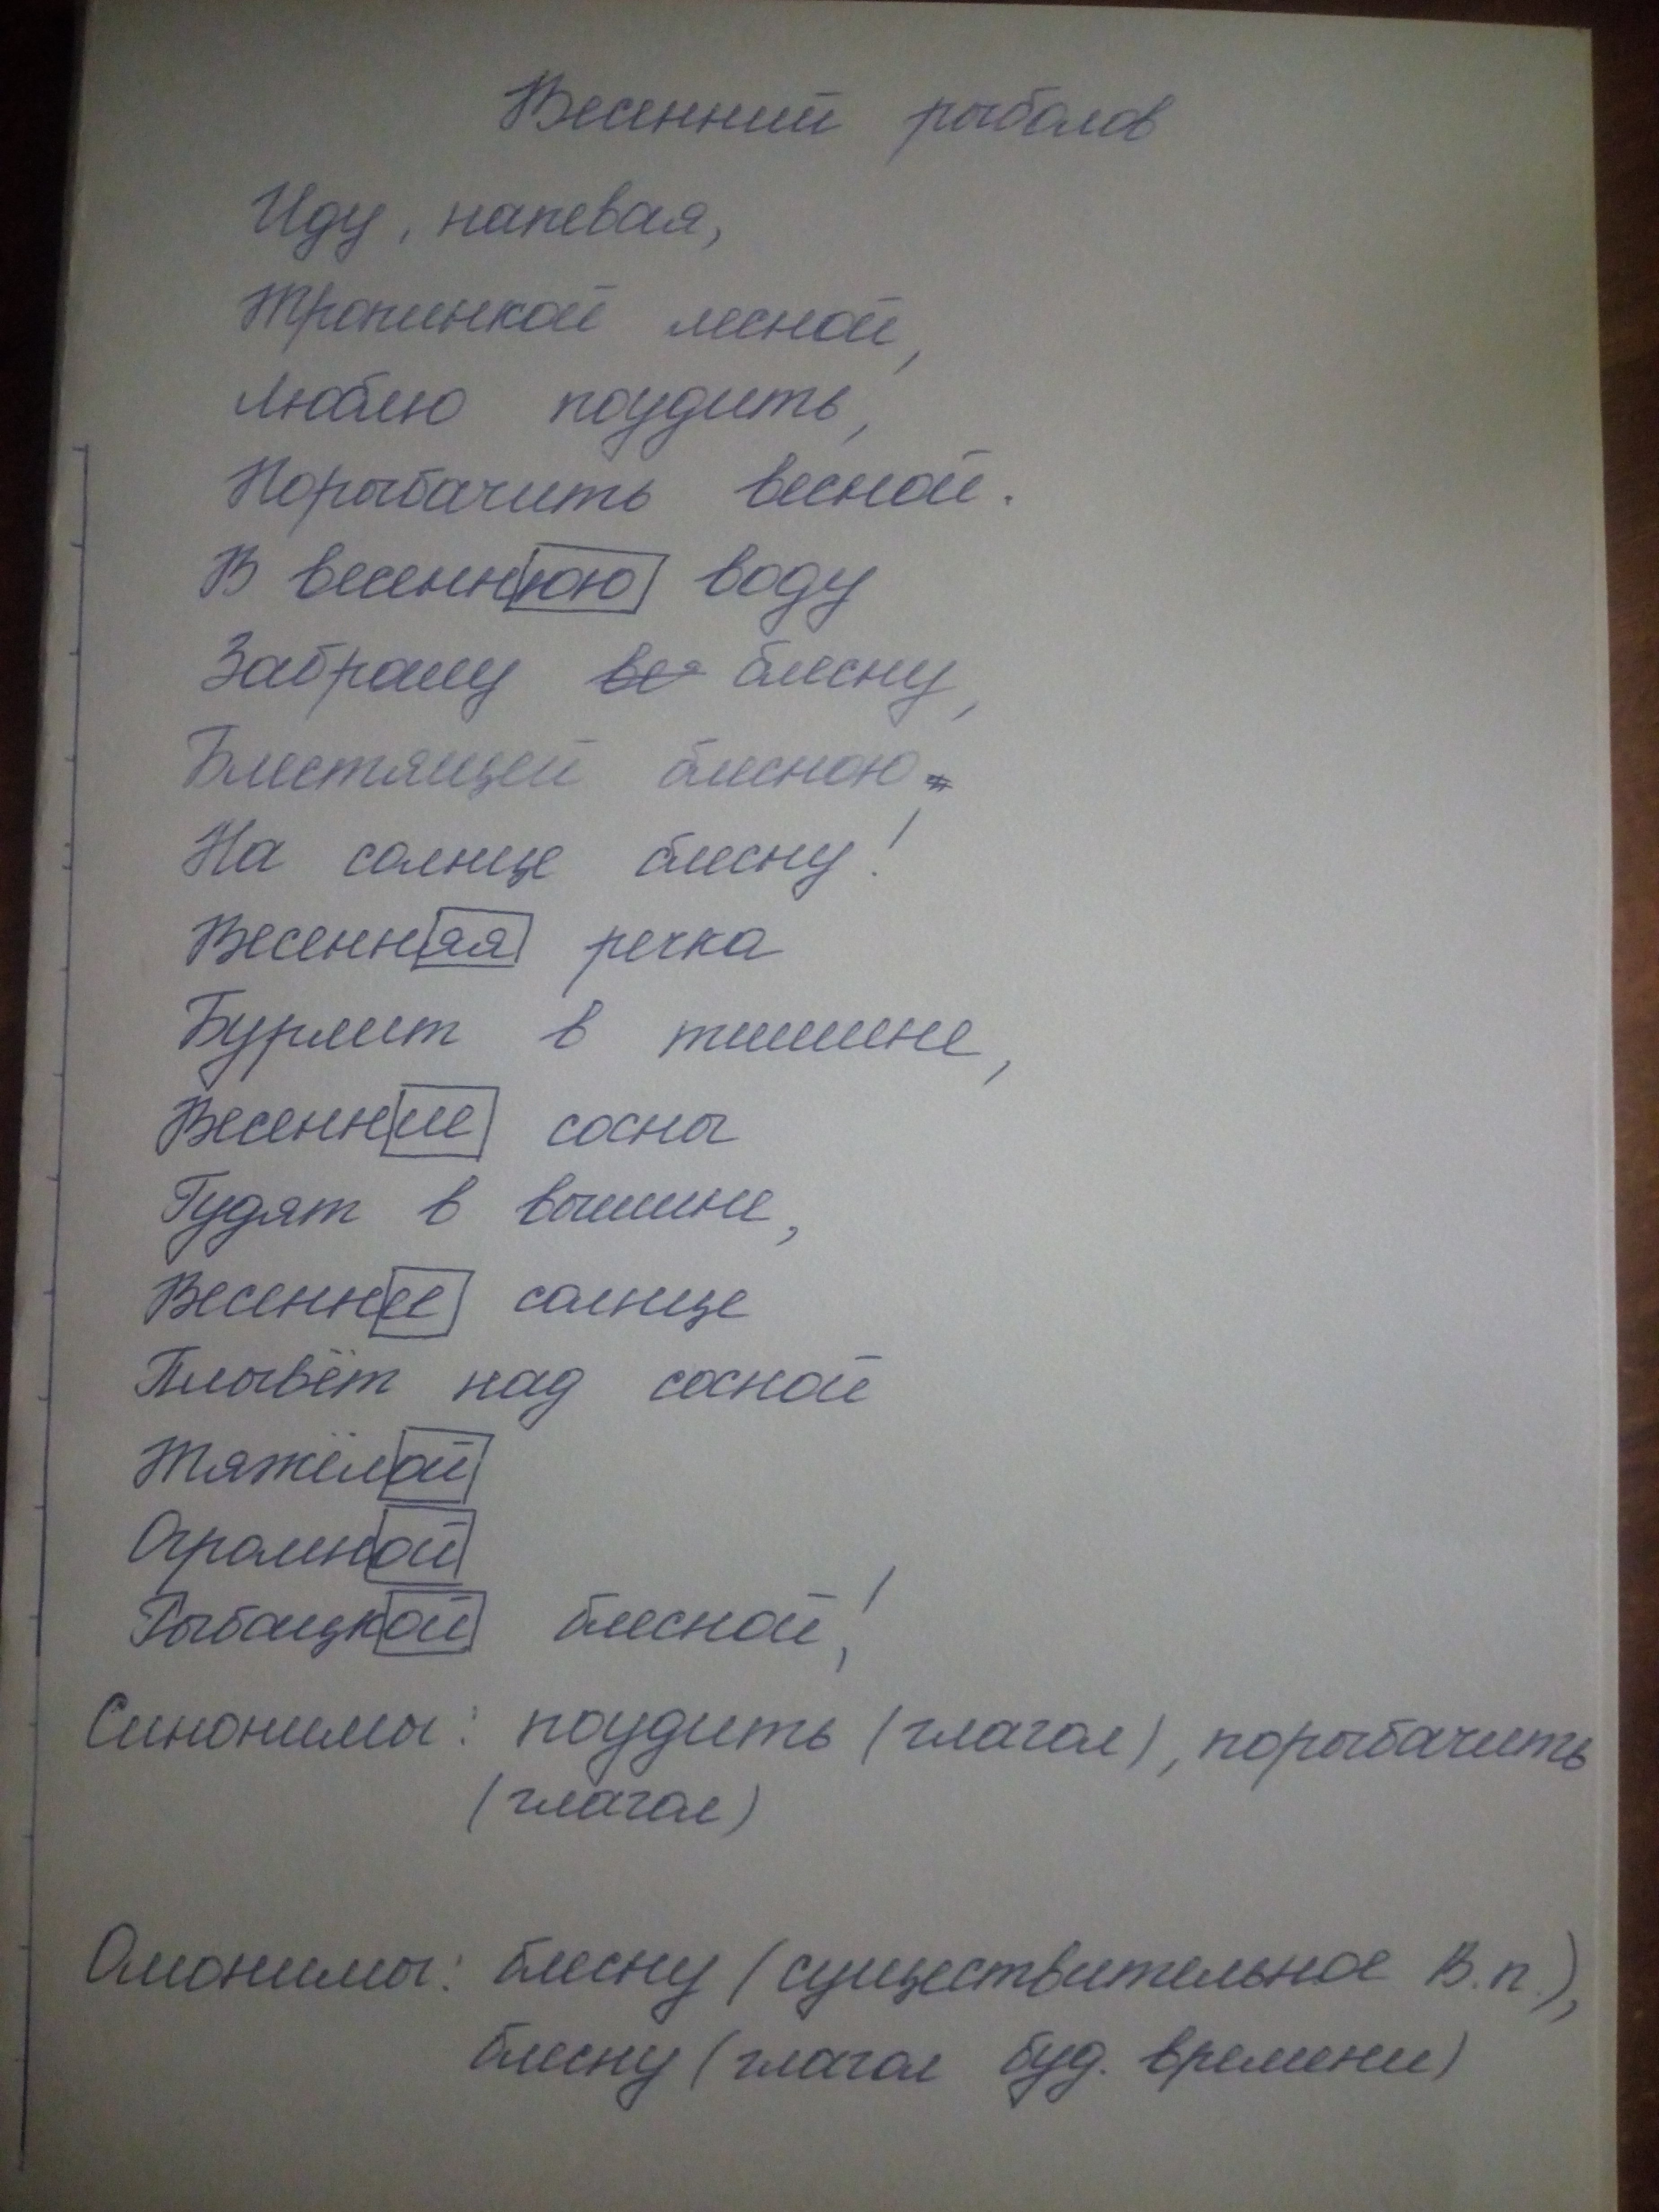 Весенний рыболов
Иду, напевая,
Тропинкой лесной,
Люблю поудить,
Порыбачить весной.
В весеннюю воду
Заброшу блесну,
Блестящей блесною
На солнце блесну!
Весенняя речка
Бурлит в тишине,
Весенние сосны
Гудят в вышине,
Весеннее солнце
Плывёт над сосной
Тяжёлой
Огромной
Рыбацкой блесной!
Синонимы: поудить (глагол), порыбачить
(глагол)
Омонимы: блесну (существительное В.п.),
блесну (глагол буд. времени)